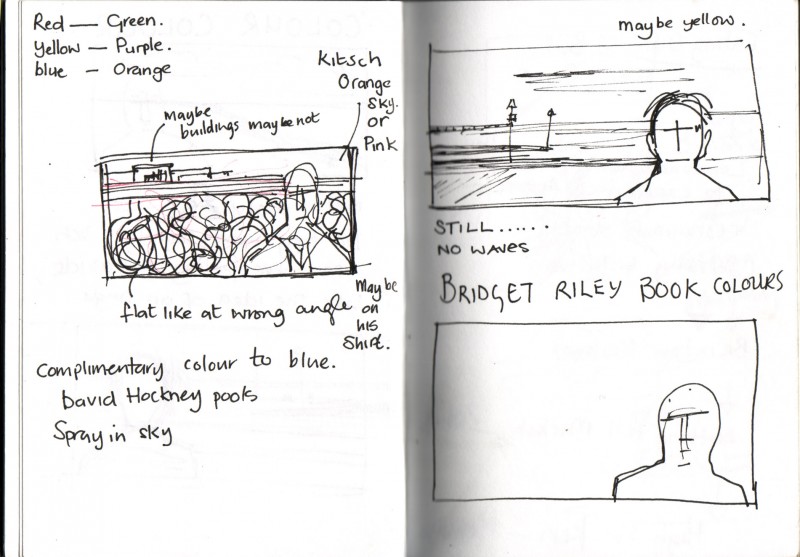 Red — Green.
Yellow — Purple.
blue — Orange
Kitsch
Orange
Sky.
or
Pink
Maybe
buildings maybe not
flat like at wrong angle
Maybe
on
his
Shirt.
Complimentary colour to blue.
David Hockney pools
Spray in sky
maybe yellow.
STILL......
NO WAVES
BRIDGET RILEY BOOK COLOURS